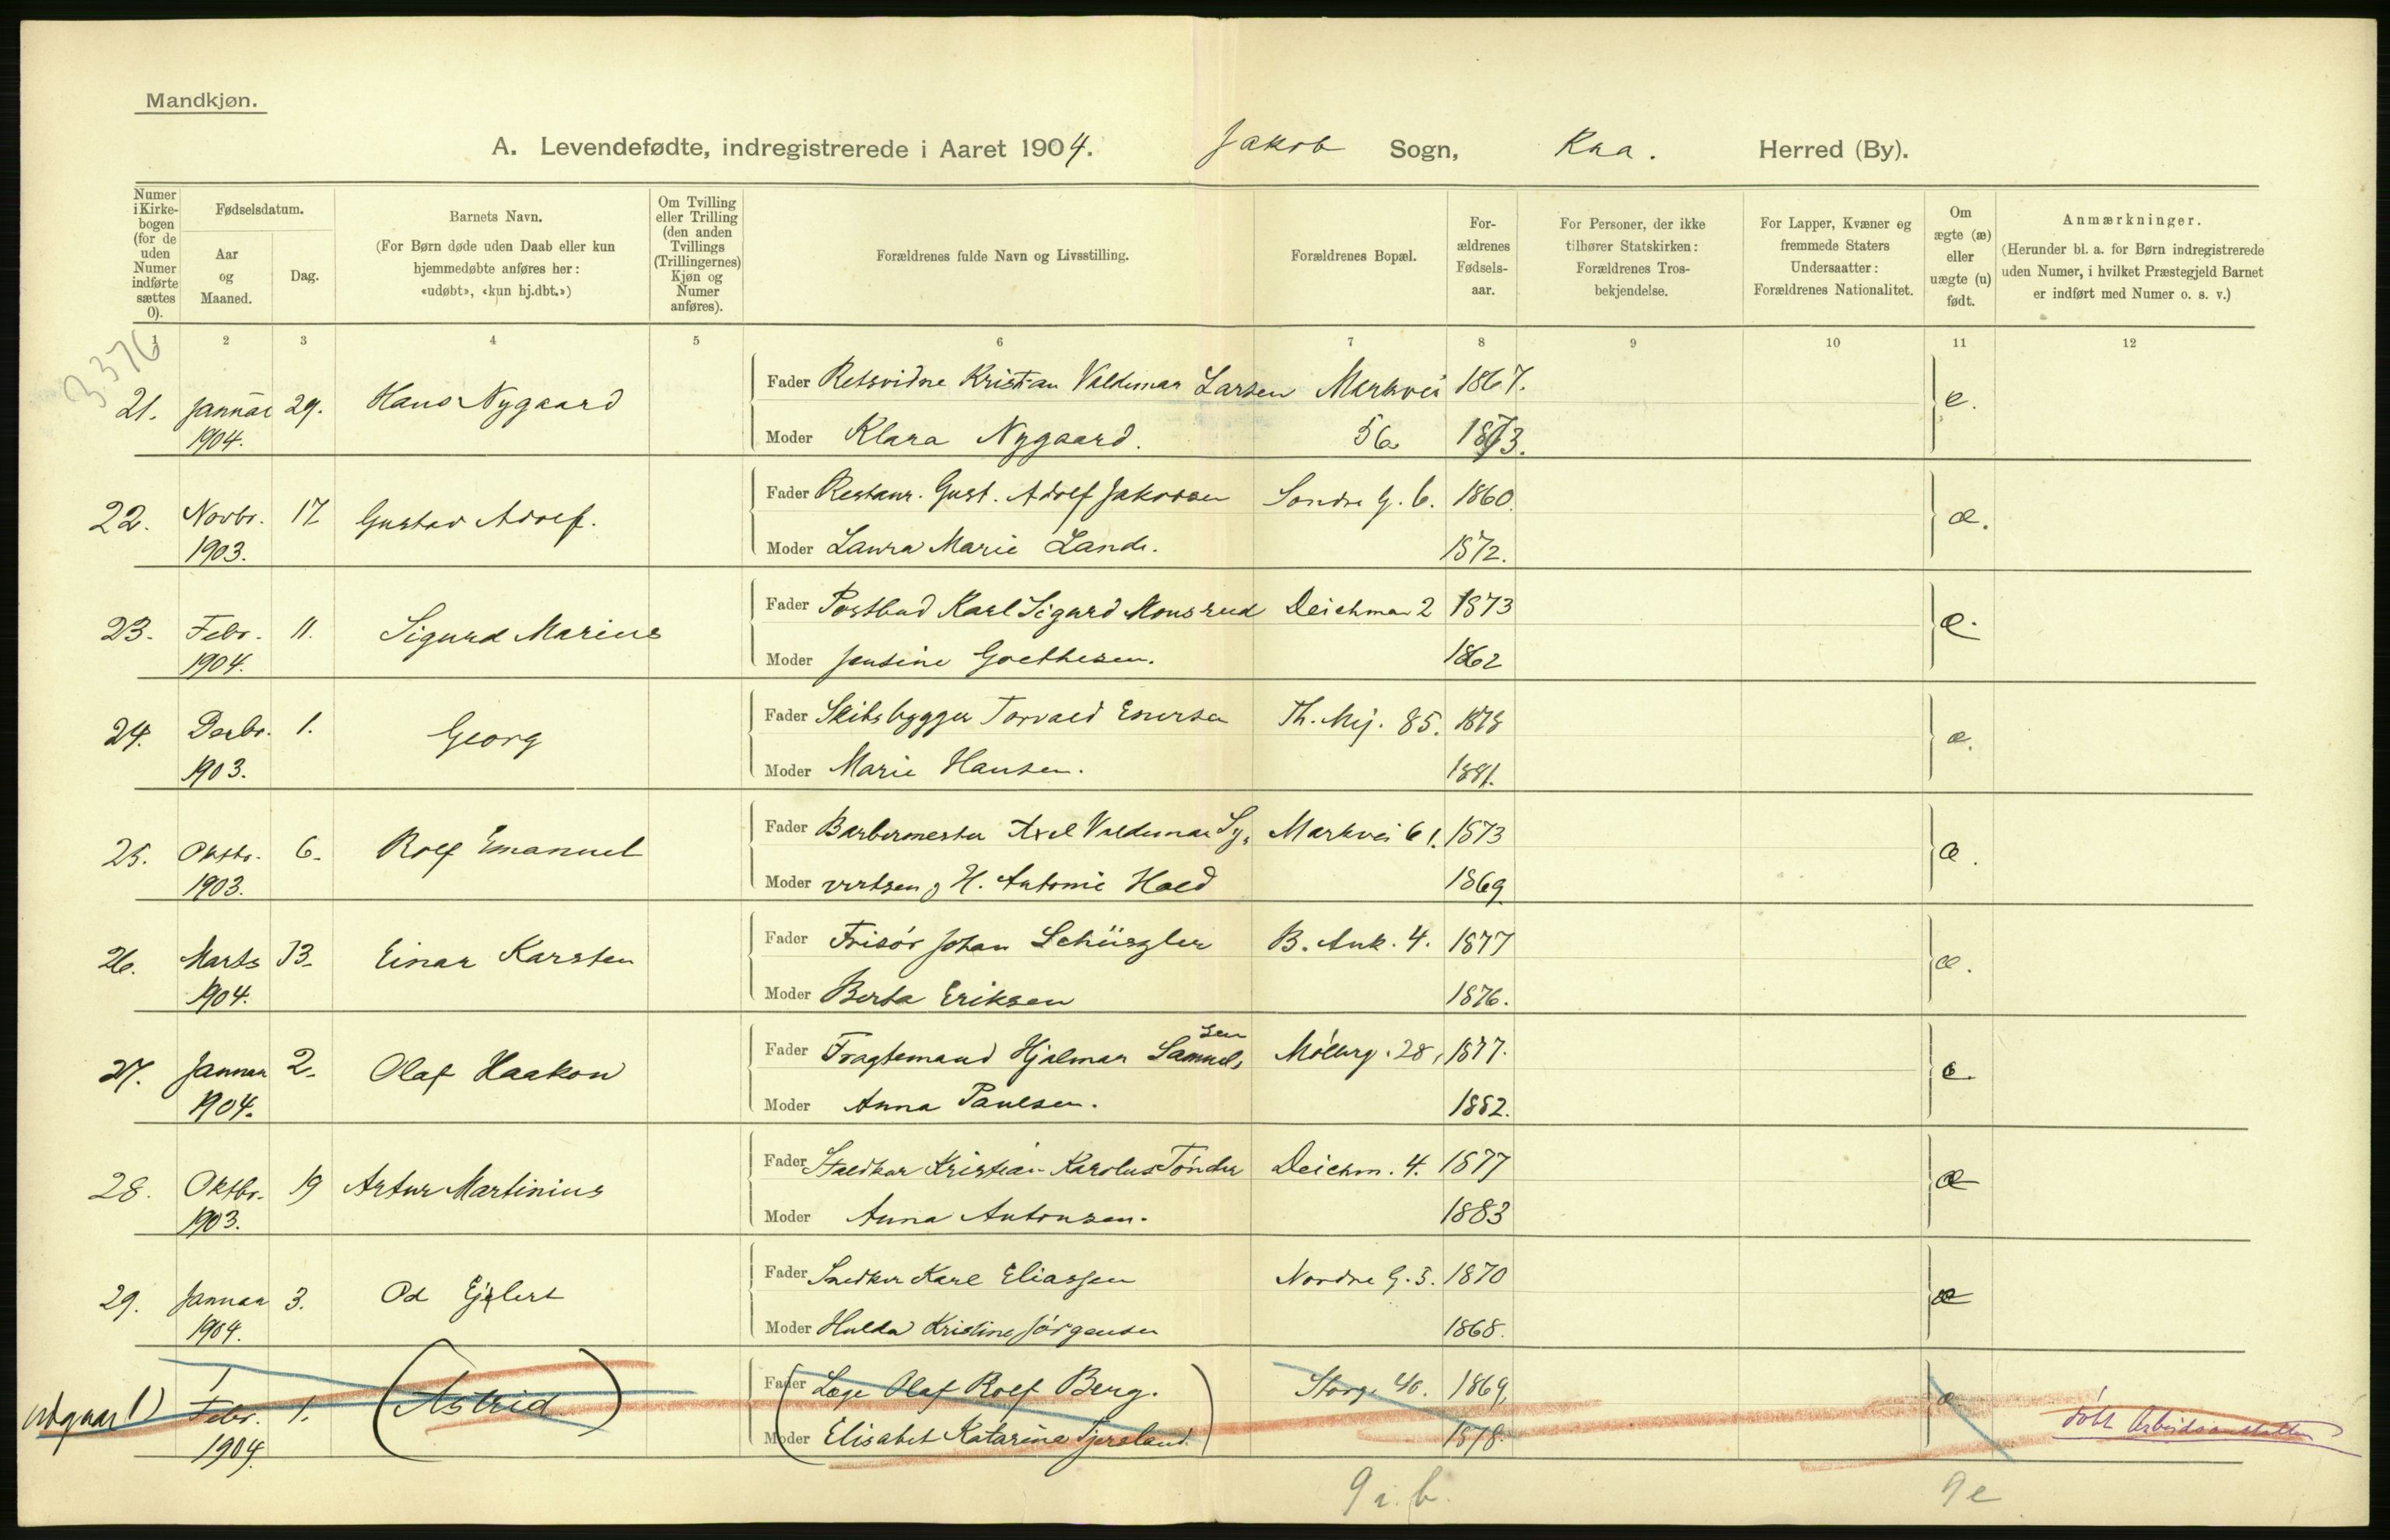 Mandkjøn.
A. Levendefødte, indregistrerede i Aaret 1904. Jakob Sogn, Kra. Herred (By).
Numer i Kirke-bogen (for de uden Numer indførte sættes 0).
Fødselsdatum.
Aar og Maaned.
Dag.
Barnets Navn.
(For Børn døde uden Daab eller kun hjemmedøbte anføres her: «udøbt», «kun hj.dbt.»)
Om Tvilling eller Trilling (den anden Tvillings (Trillingernes) Kjøn og Numer anføres).
Forældrenes fulde Navn og Livsstilling.
Forældrenes Bopæl.
For-ældrenes Fødsels-aar.
For Personer, der ikke tilhører Statskirken: Forældrenes Tros-bekjendelse.
For Lapper, Kvæner og fremmede Staters Undersaatter: Forældrenes Nationalitet.
Om ægte (æ) eller uægte (u) født.
Anmærkninger.
(Herunder bl. a. for Børn indregistrerede uden Numer, i hvilket Præstegjeld Barnet er indført med Numer o. s. v.)
1 2 3 4 5 6 7 8 9 10 11 12
3376
21. Januar 29. Hans Nygaard Fader Retsvidne Kristian Valdemar Larsen Markvei 1867. æ.
1904. Moder Klara Nygaard. 56 1873.
22. Novbr. 17 Gustav Adolf. Fader Restaur. Gust. Adolf Jakobsen Søndre G. 6. 1860. æ.
1903. Moder Laura Marie Lande. 1872.
23. Febr. 11. Sigurd Marius Fader Postbud Karl Sigurd Monsrud Deichman 2 1873 æ.
1904. Moder Jensine Goethesen. 1862
24. Decbr. 1. Georg Fader Skibsbygger Torvald Enersen Th. Mej. 85. 1878 æ.
1903. Moder Marie Hansen. 1881.
25. Oktbr. 6. Rolf Emanuel Fader Barbermester Axel Valdemar Sy- Markvei 61. 1873 æ.
1903. Moder vertsen, H. Antonie Hold 1869
26. Marts 13. Einar Karsten Fader Frisør Johan Schüszler B. Ank. 4. 1877 æ.
1904. Moder Berta Eriksen 1876.
27. Januar 2. Olaf Haakon Fader Fragtemand Hjalmar Samuelsen Møllerg. 28, 1877. æ.
1904. Moder Anna Paulsen. 1882.
28. Oktbr. 19 Artur Martinius Fader Staldkar Kristian Karolus Tønder Deichm. 4. 1877 æ
1903. Moder Anna Antonsen. 1883
29. Januar 3. Od Ejlert Fader Snedker Karl Eliassen Nordre G. 3. 1870 æ
1904. Moder Hulda Kristine Jørgensen 1868.
udgaar 1) Febr. 1. (Astrid) Fader Læge Olaf Rolf Berg. Storg. 40. 1869, æ døbt Arbeidsanstalten
1904. Moder Elisabet Katarina Tjersland. 1878.
9 i. b. 9 e